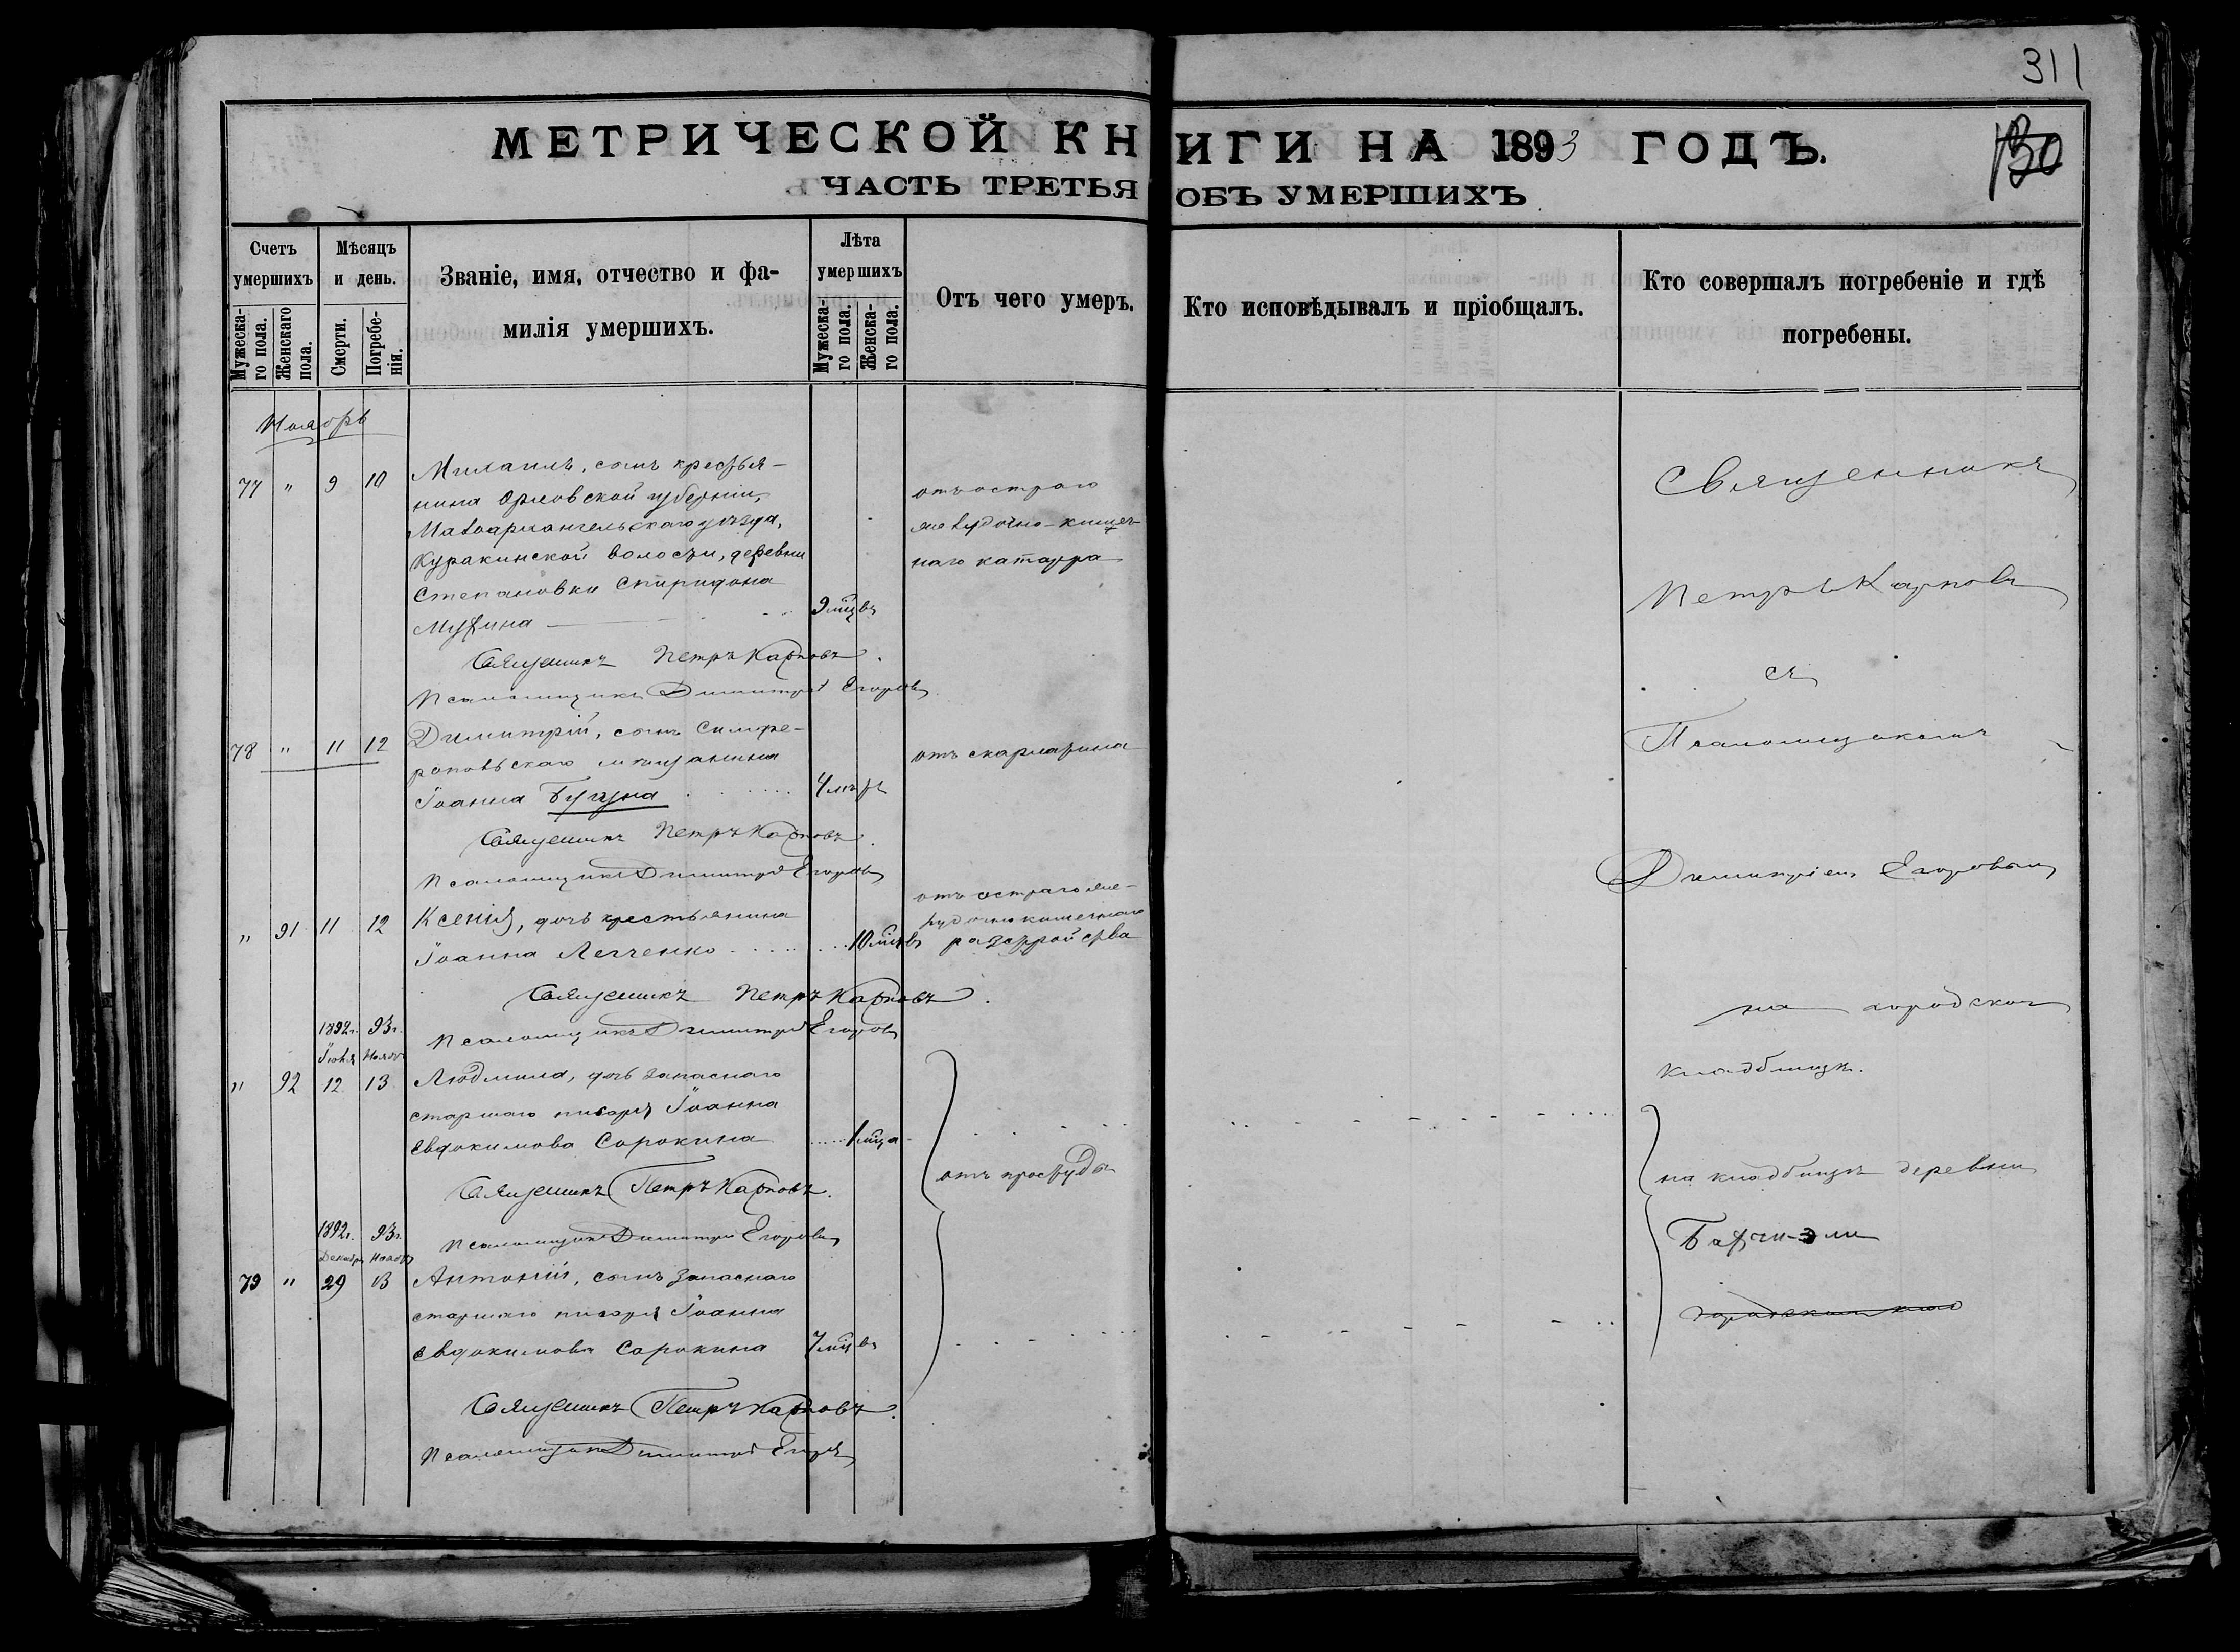 311
МЕТРИЧЕСКОЙ КНИГИ НА 1893 ГОДЪ.
130
ЧАСТЬ ТРЕТЬЯ ОБЪ УМЕРШИХЪ
Счетъ умершихъ
Мужескаго пола.
Женскаго пола.
Мѣсяцъ и день.
Смерти.
Погребенія.
Званіе, имя, отчество и фа-
милія умершихъ.
Лѣта умершихъ
Мужескаго пола.
Женскаго пола.
Отъ чего умеръ.
Кто исповѣдывалъ и пріобщалъ.
Кто совершалъ погребеніе и гдѣ
погребены.
Ноябрь
77 " 9 10 Михаилъ, сынъ крестья-
нина Орловской губерніи,
Малоархангельскаго уѣзда,
Куракинской волости, деревни
Степановки Спиридона
9 мцвъ
отъ остраго
желудочно-кишеч-
наго катарра
Священникъ Петръ Карповъ.
Псаломщикъ Димитрій Егоровъ
78 " 11 12 Димитрій, сынъ Симфе-
ропольскаго мѣщанина
Іоанна 4 лѣтъ
отъ скарлатина
Священникъ Петръ Карповъ.
Псаломщикъ Димитрій Егоровъ
" 91 11 12 Ксенія, дочь крестьянина
Іоанна Левченко 10 мцвъ
отъ остраго же-
лудочно кишечнаго
разстройства
Священникъ Петръ Карповъ.
Псаломщикъ Димитрій Егоровъ
1892г. 93г.
" 92 12 13 Людмила, дочь запаснаго
старшаго писаря Іоанна
Евдокимова Сорокина 1 мца
Священникъ Петръ Карповъ.
Псаломщикъ Димитрій Егоровъ
отъ простуды
1892г. 93г.
Декабр Ноябр
79 " 29 13 Антоній, сынъ запаснаго
старшаго писаря Іоанна
Евдокимова Сорокина 7 мцвъ
Священникъ Петръ Карповъ.
Псаломщикъ Димитрій Егоровъ
Священникъ
Петръ Карповъ
съ
Псаломщикомъ
Димитріемъ Егоровымъ
на городском
кладбищѣ.
на кладбищѣ деревни
Бахчи-эли